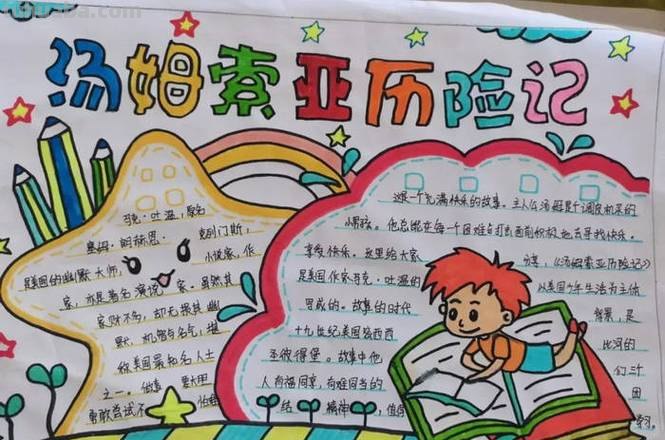 汤姆索亚历险记
马克·吐温，原名
塞姆·朗赫恩· 克列门斯，
是美国的幽默大师， 小说家，作
家，亦是著名演说 家。虽然其
家财不多，却无损其幽
默、机智与名气，堪
称美国最知名人士
之一。他 敢
勇敢尝试不
这是一个充满快乐的故事。主人公汤姆是个调皮机灵的
小男孩。他总能在每个困难与打击面前积极地去寻找快乐。
享受快乐。这里给大家 分享，《汤姆索亚历险记》
是美国作家马克·吐温的 以美国少年生活为主体
写成的。故事的时代 背景，是
十九世纪美国 比河的
圣彼得堡。故事中他 们
人有福同享，有难同当的 团
结 精神 ，值得 学习。